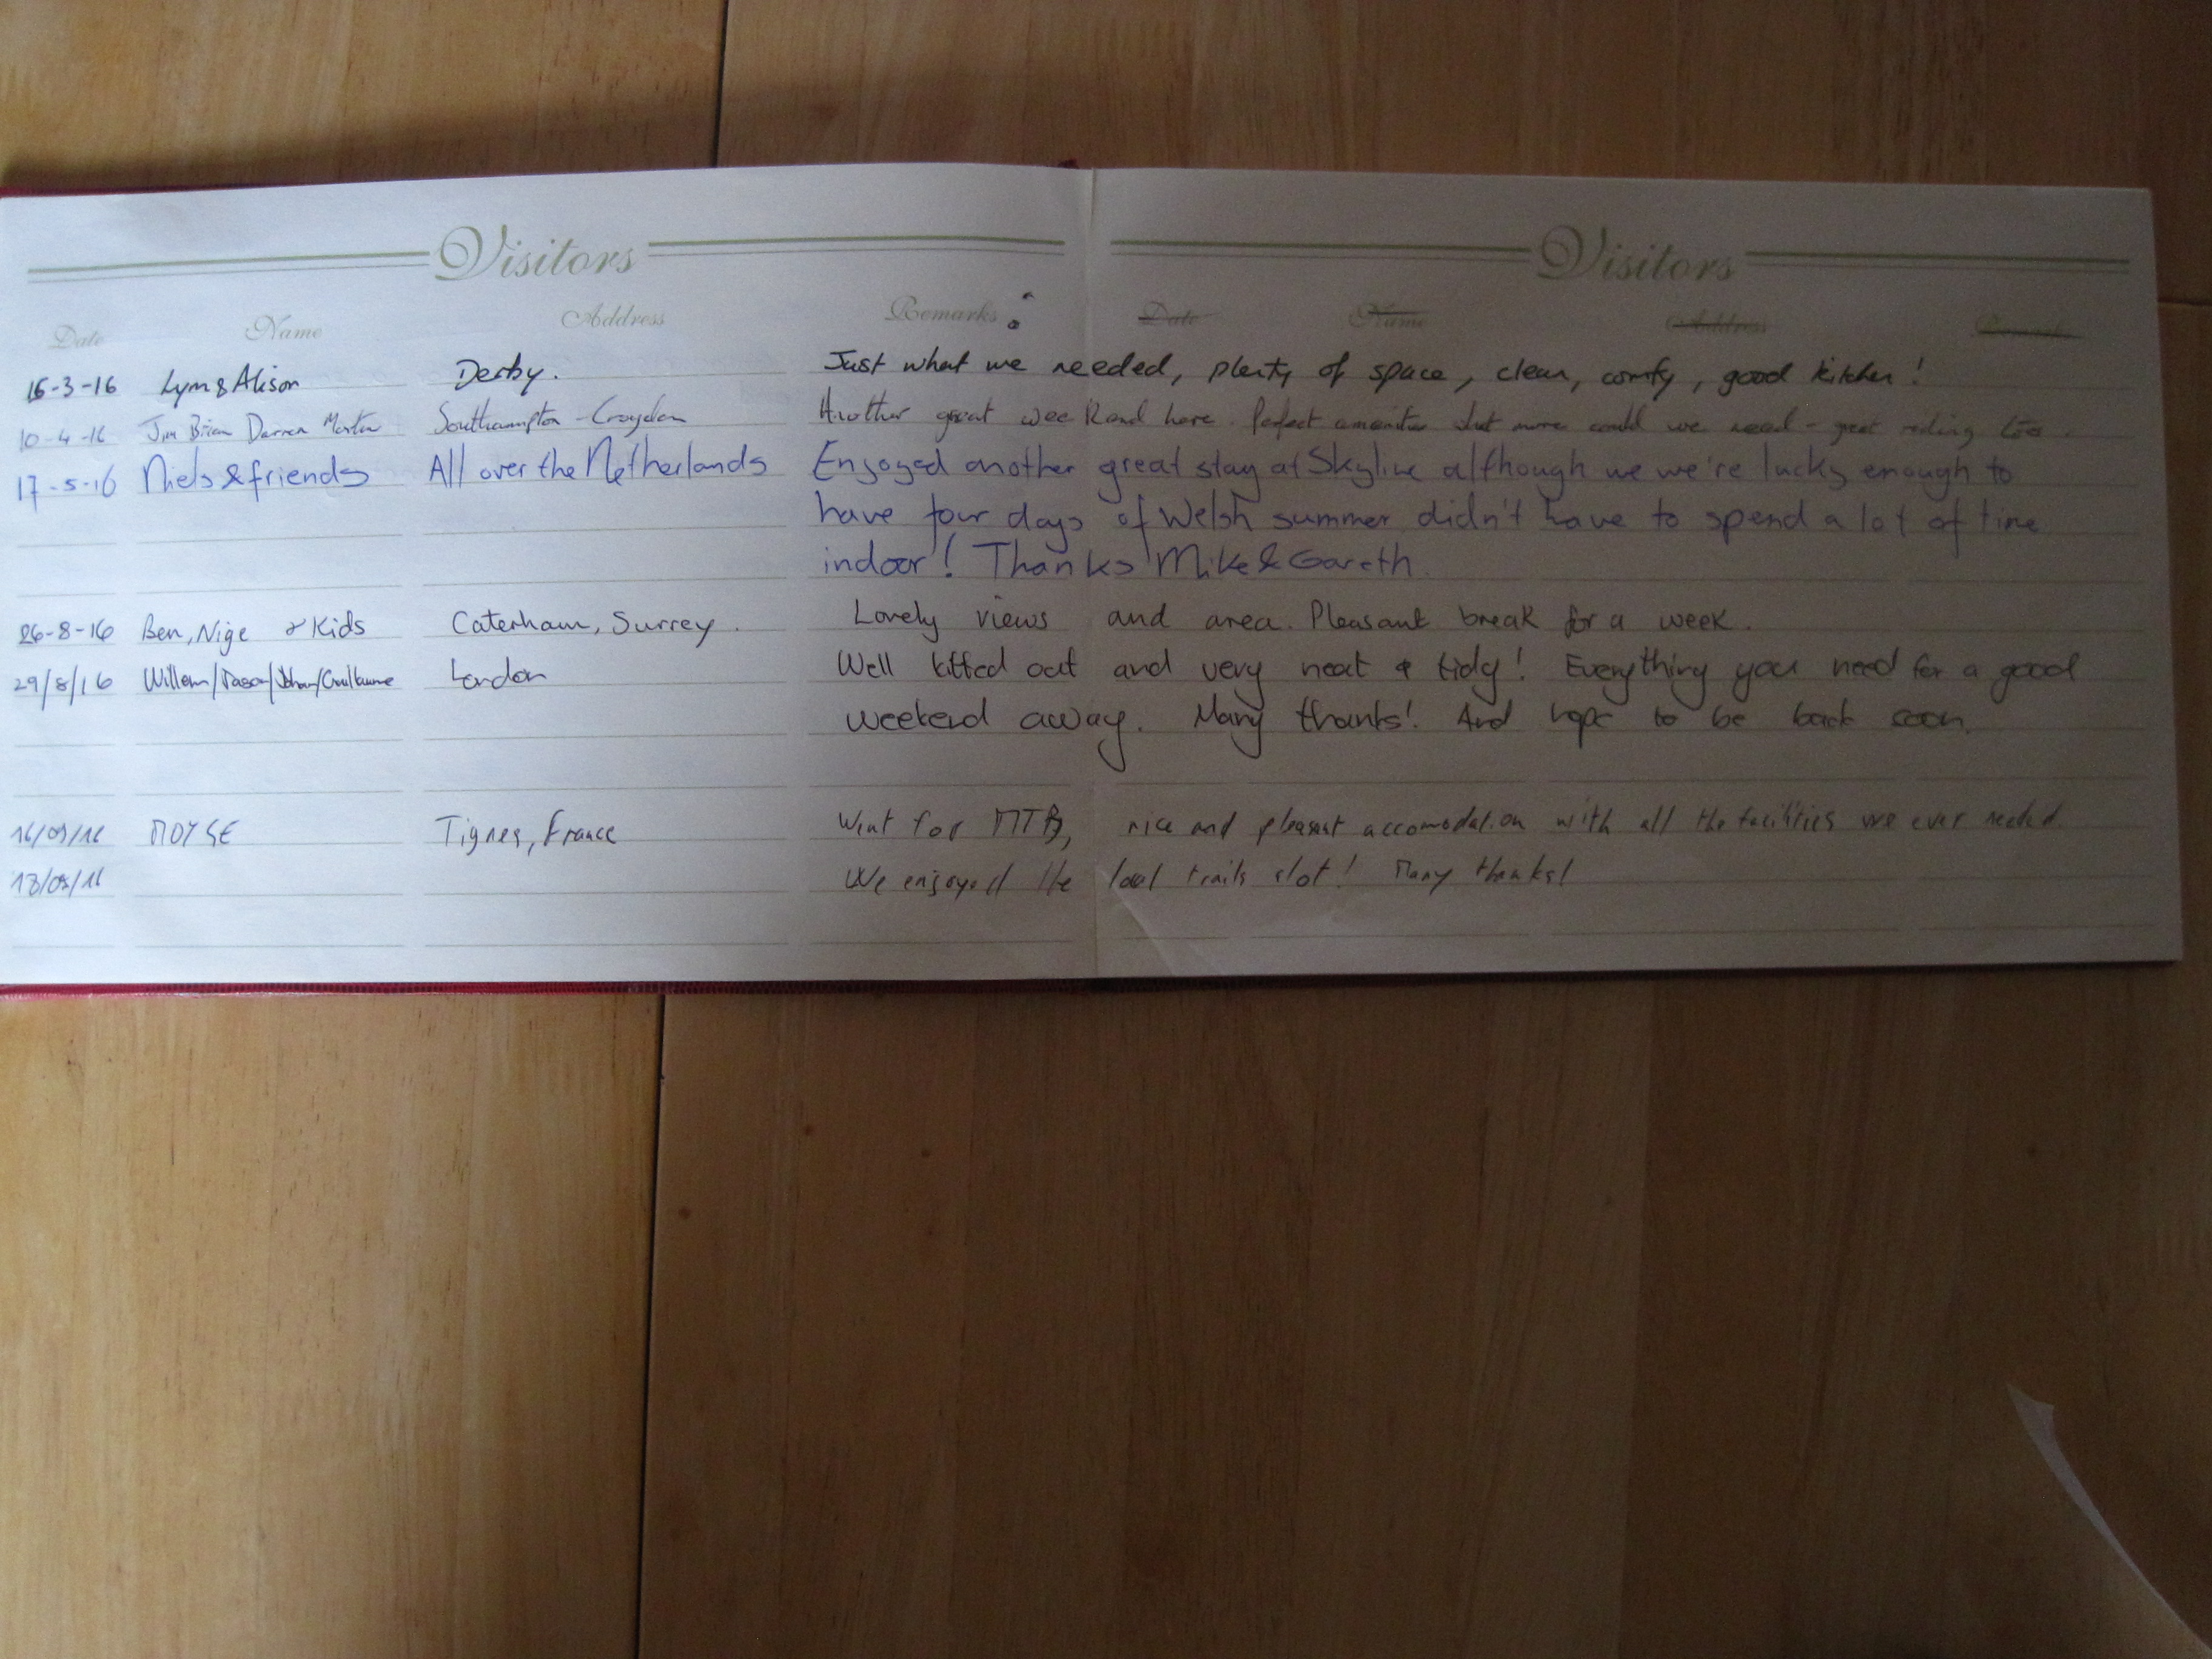 Visitors Visitors
Date Name Address Remarks: Date Name Address Remarks
16-3-16 Lyn & Alison Derby. Just what we needed, plenty of space, clean, comfy, good kitchen!
10-4-16 Jim Brian Darren Martin Southampton - Croydon Another great weekend here. Perfect amenities what more could we need - great riding too.
17-5-16 Niels & friends All over the Netherlands Enjoyed another great stay at Skyline although we we're lucky enough to
have four days of Welsh summer didn't have to spend a lot of time
indoor! Thanks Mike & Gareth.
26-8-16 Ben, Nige & Kids Caterham, Surrey. Lovely views and area. Pleasant break for a week.
29/8/16 Willem/Jason/Johan/Guillaume London Well kitted out and very neat & tidy! Everything you need for a good
weekend away. Many thanks! And hope to be back soon.
16/09/16 MOYSE Tignes, France Went for MTB, nice and pleasant accomodation with all the facilities we ever needed.
18/09/16 We enjoyed the local trails alot! Many thanks!